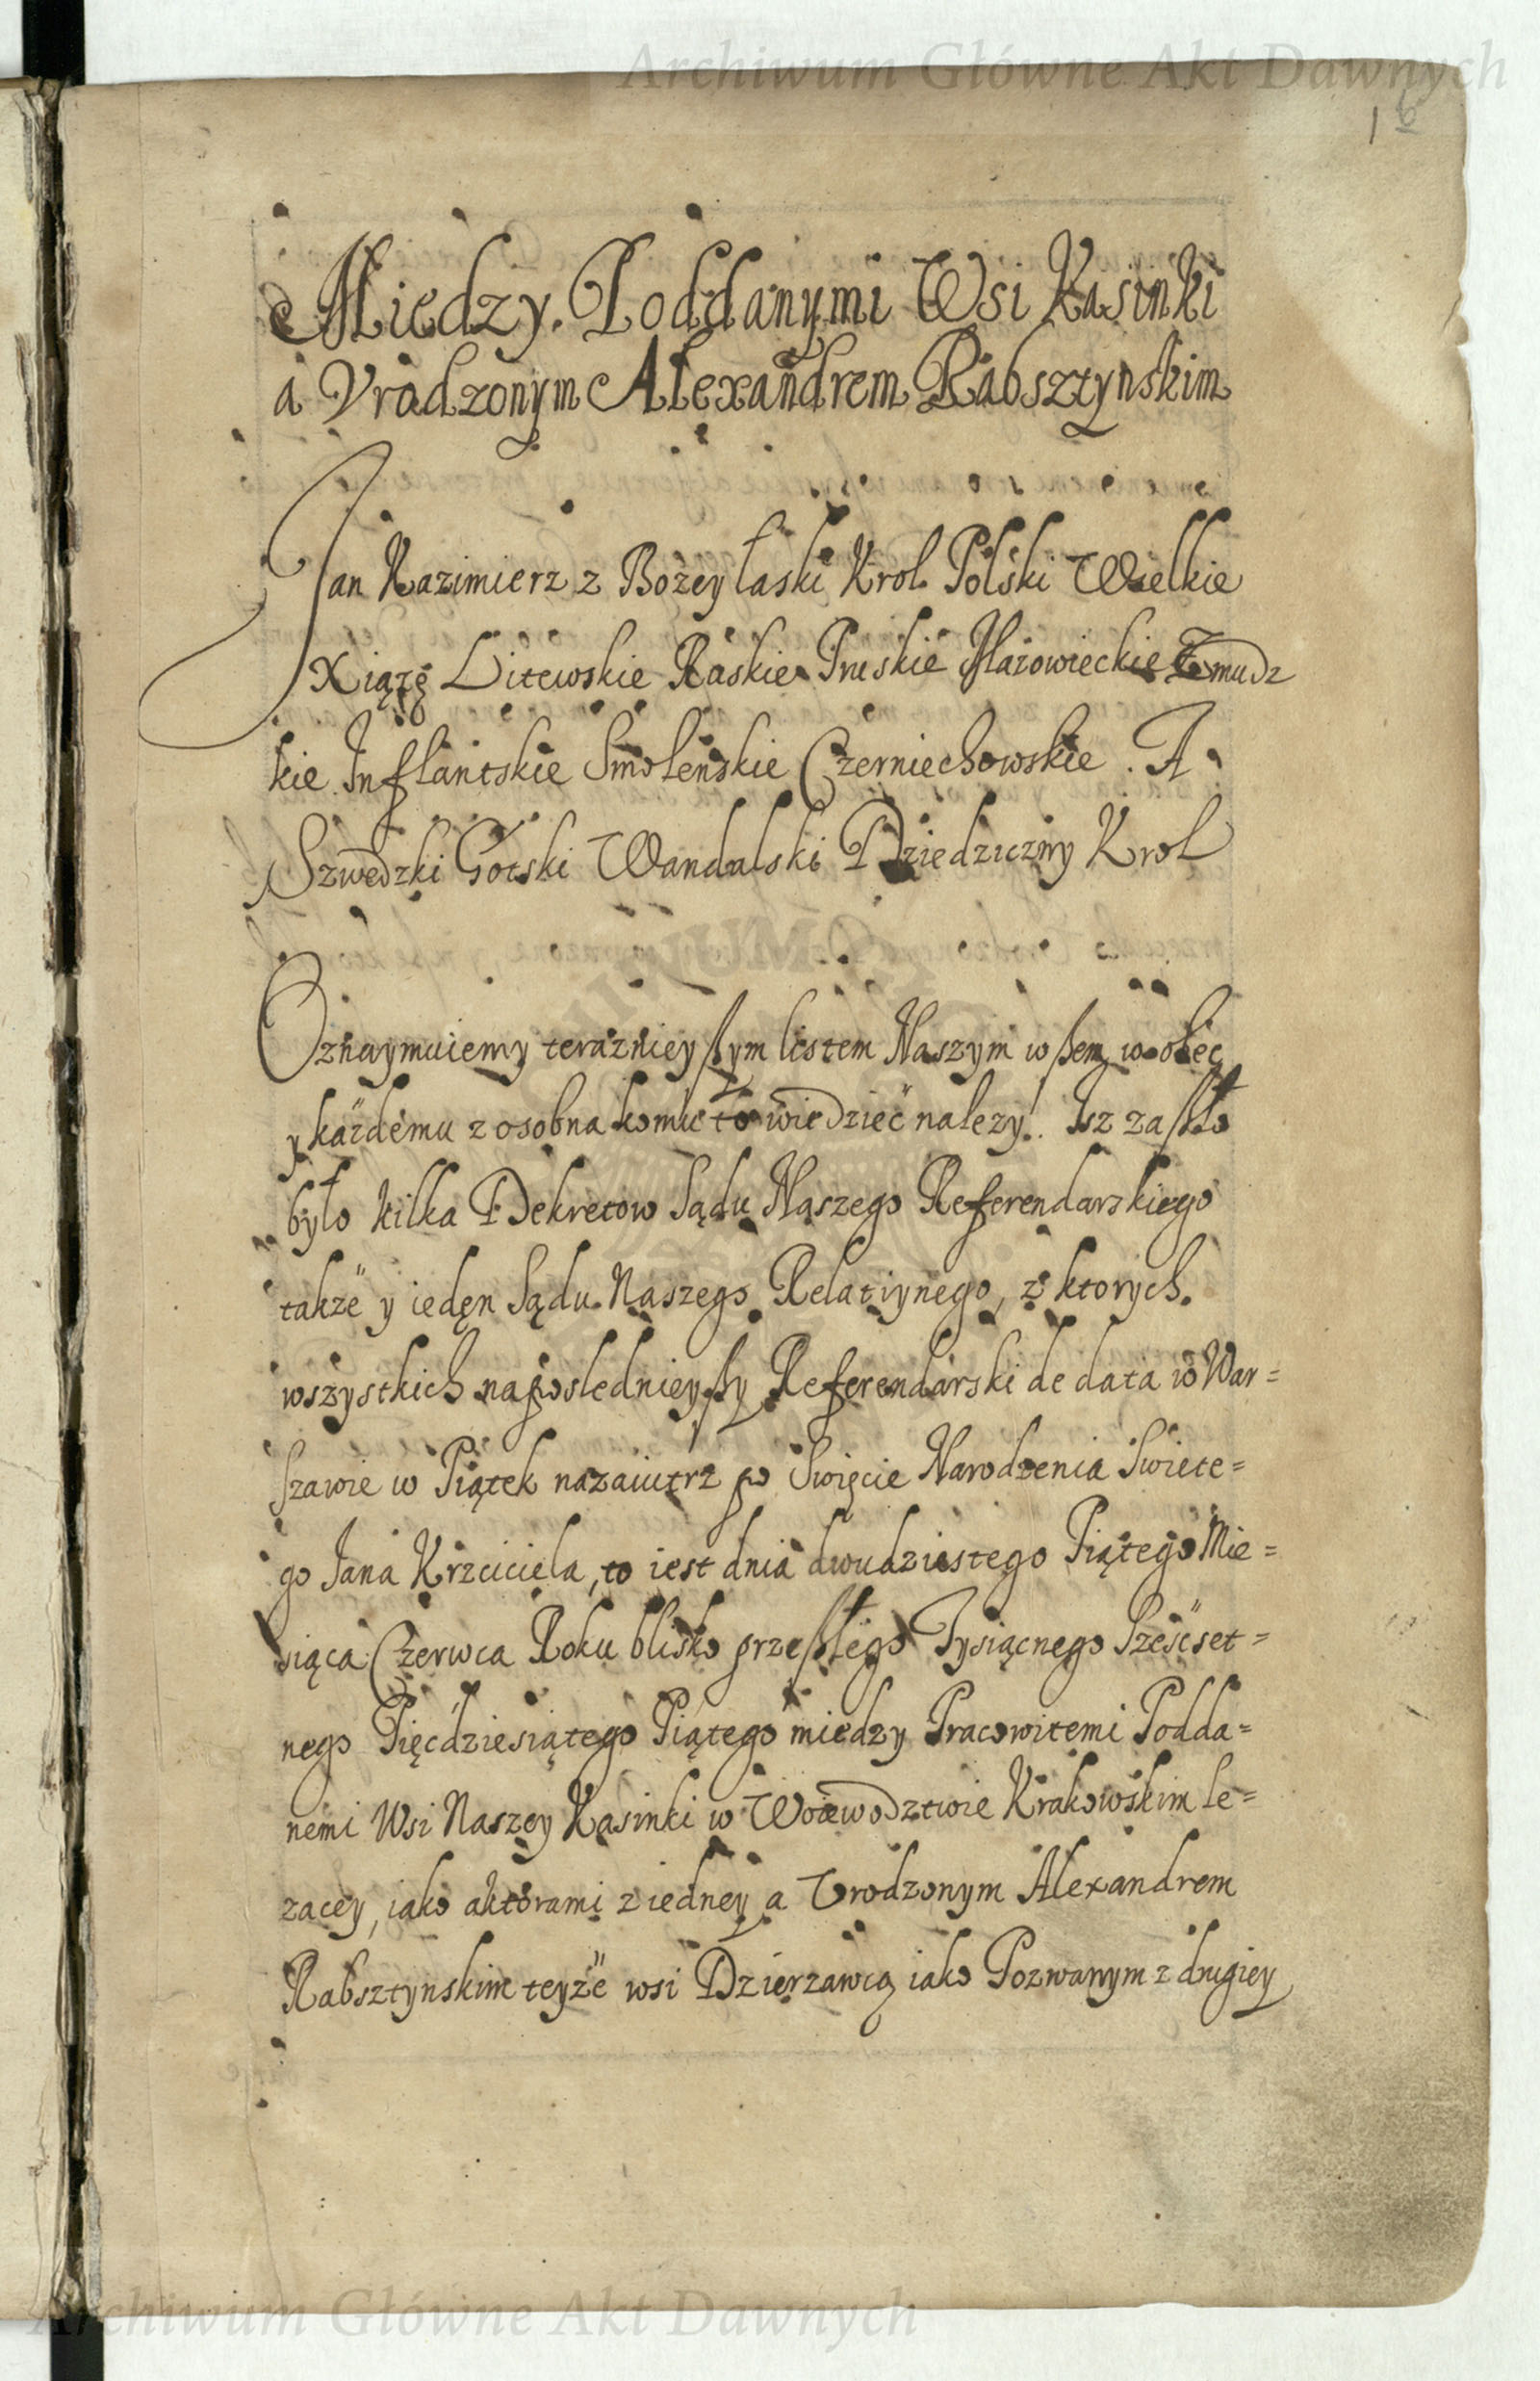 Archiwum Główne Akt Dawnych
1 6
Miedzy Poddanymi Wsi Kasinki
a Vrodzonym Alexandrem Rabsztynskim
Jan Kazimierz z Bozey łaski Krol Polski Wielkie
Xiążę Litewskie Ruskie Pruskie Mazowieckie Zmudz
kie Inflantskie Smolenskie Czerniechowskie. A
Szwedzki Gotski Wandalski Dziedziczny Krol
Oznaymuiemy teraznieyßym listem Naszym wßem wobec
y kazdemu z osobna komu to wiedzieć nalezy. Isz zaßło
było kilka Dekretow Sądu Naszego Referendarskiego
takze y ieden Sądu Naszego Relatiynego, z ktorych
wszystkich naposlednieyßy Referendarski de data w War=
szawie w Piątek nazaiutrz po Swięcie Narodzenia Swiete=
go Jana Krzciciela, to iest dnia dwudziestego Piątego Mie=
siąca Czerwca Roku blisko przeßłego Tysiącnego Sześćset=
nego Pięćdziesiątego Piątego miedzy Pracowitemi Podda=
nemi Wsi Naszey Kasinki w Woiewodztwie Krakowskim le=
zacey, iako aktorami z iedney a Urodzonym Alexandrem
Rabsztynskim teyze wsi Dzierzawcą iako Pozwanym z drugiey
Archiwum Główne Akt Dawnych